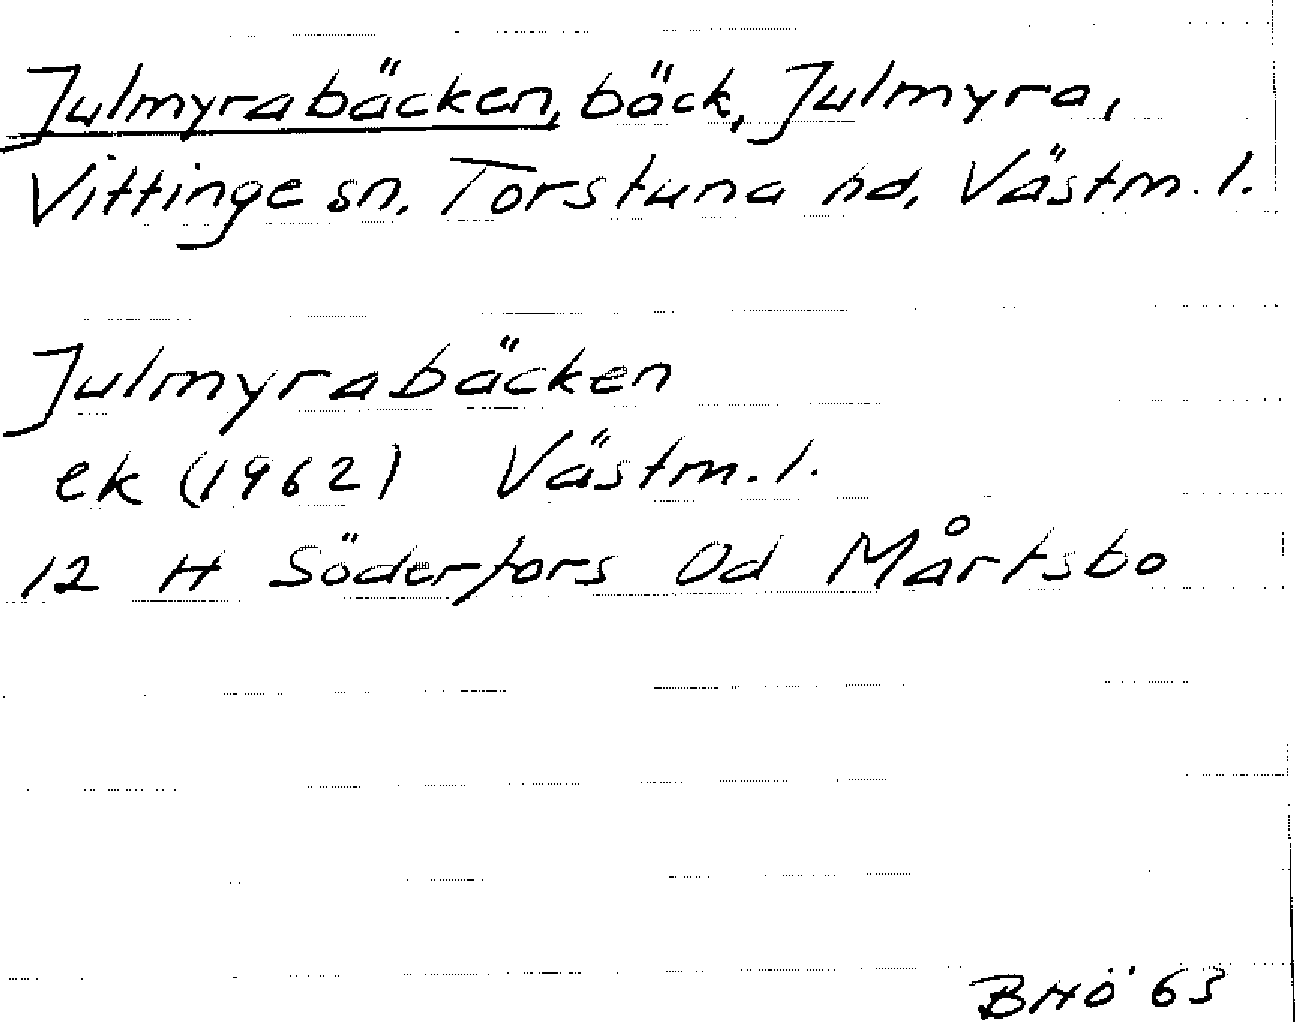 Julmyrabäcken, bäck, Julmyra,
Vittinge sn. Torstuna hd, Västm. l.
Julmyrabäcken
ek (1962) Västm. l.
12 H Söderfors 0d Mårtsbo
BHÖ 63